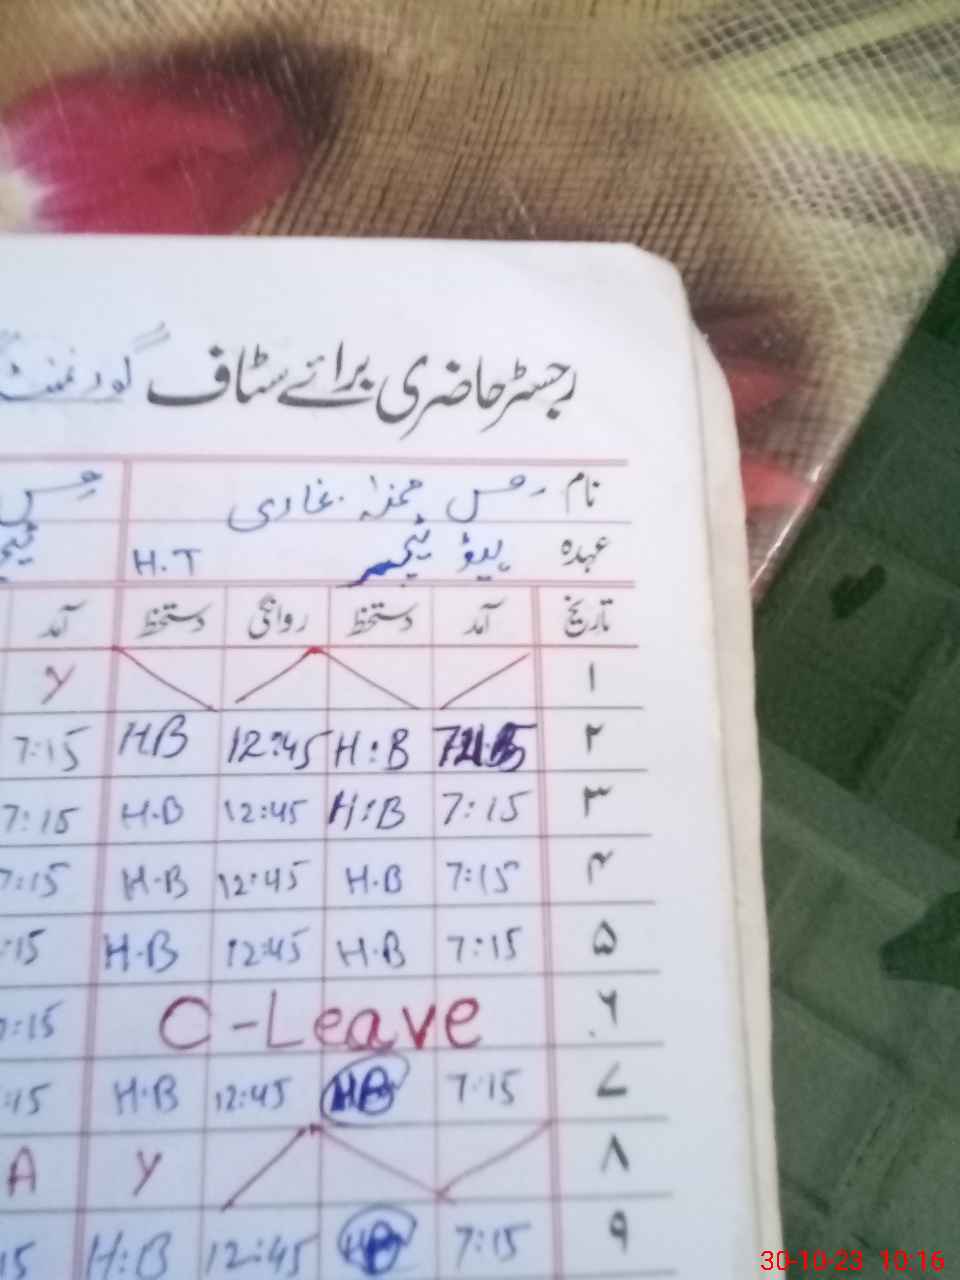 رجسٹر حاضری برائے سٹاف گورنمنٹ
نام مس حمنہ بخاری مس
عہدہ ہیڈ ٹیچر H.T
تاریخ آمد دستخط روانگی دستخط آمد
۱ Y
۲ H:B 12:45 HB 7:15
۳ 7:15 H:B 12:45 H.B 7:15
۴ 7:15 H.B 12:45 H.B 7:15
۵ 7:15 H.B 12:45 H.B :15
۶ C-Leave :15
۷ 7:15 HB 12:45 H.B :15
۸ Y A
۹ 7:15 HB 12:45 H:B 15
30-10-23 10:16